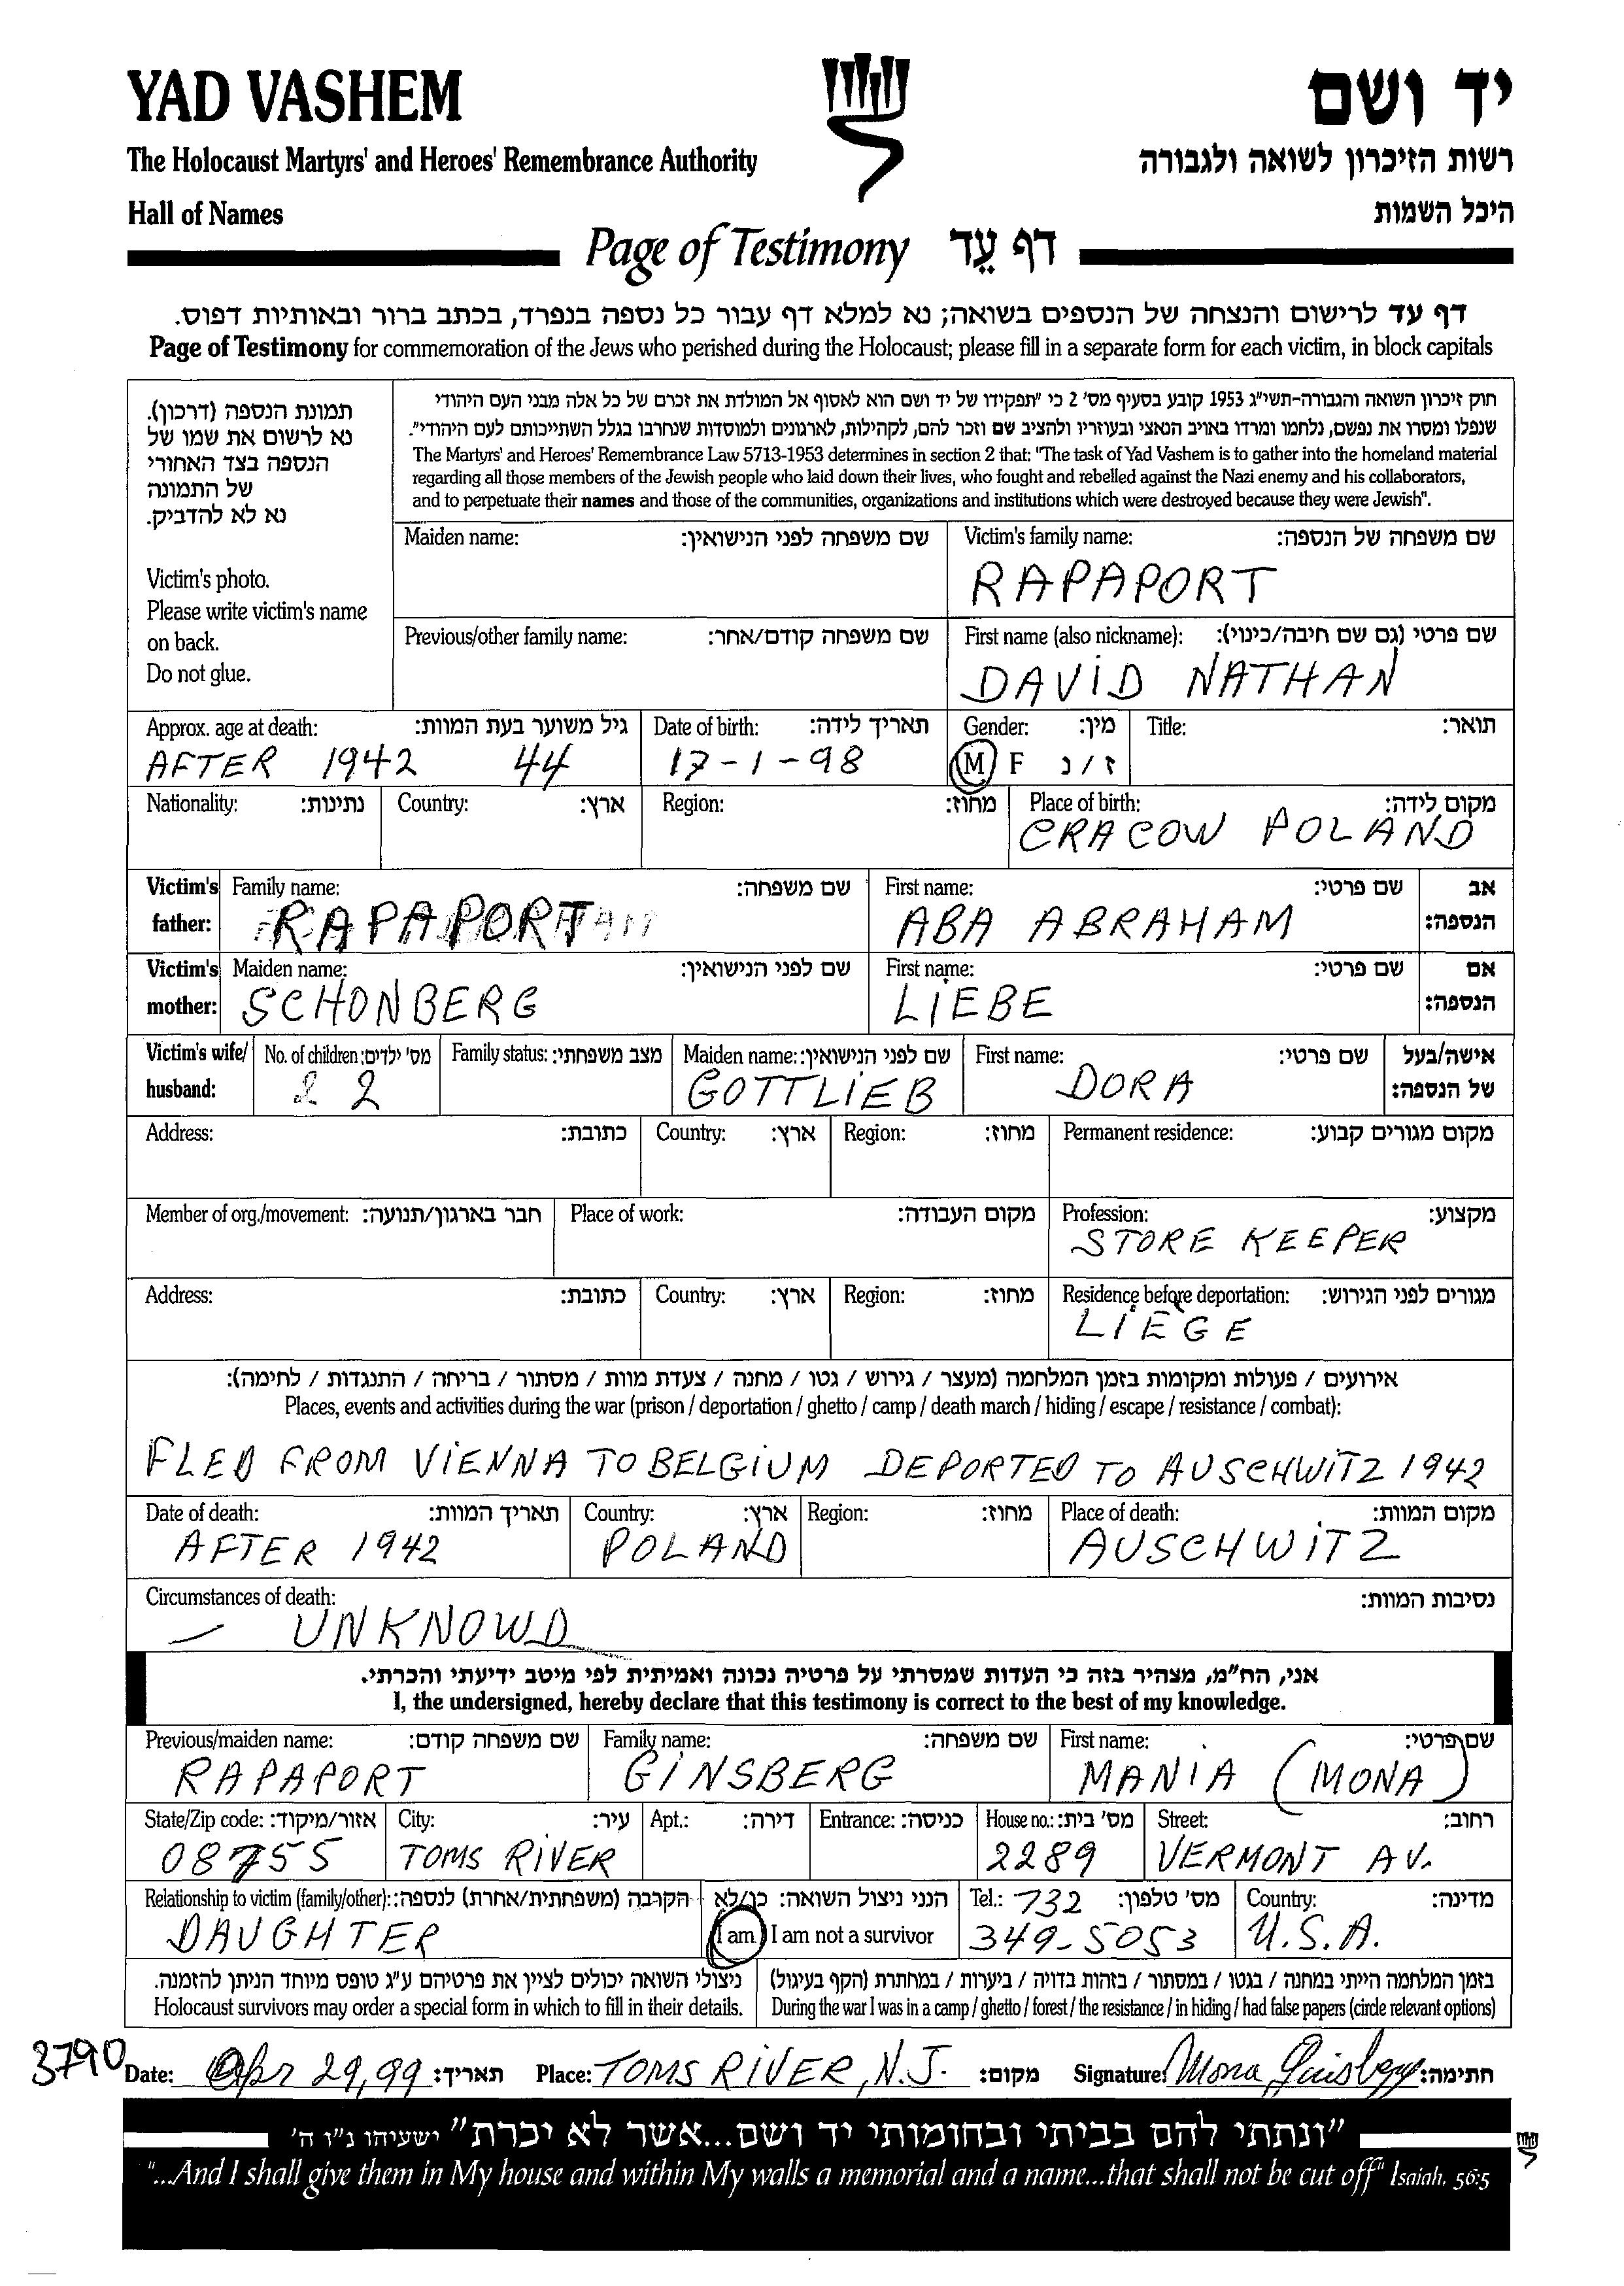 YAD VASHEM
יד ושם
The Holocaust Martyrs' and Heroes' Remembrance Authority
רשות הזיכרון לשואה ולגבורה
Hall of Names
היכל השמות
Page of Testimony דף עֵד
דף עד לרישום והנצחה של הנספים בשואה; נא למלא דף עבור כל נספה בנפרד, בכתב ברור ובאותיות דפוס.
Page of Testimony for commemoration of the Jews who perished during the Holocaust; please fill in a separate form for each victim, in block capitals
תמונת הנספה (דרכון).
נא לרשום את שמו של
הנספה בצד האחורי
של התמונה
נא לא להדביק.
Victim's photo.
Please write victim's name
on back.
Do not glue.
חוק זיכרון השואה והגבורה-תשי"ג 1953 קובע בסעיף מס' 2 כי "תפקידו של יד ושם הוא לאסוף אל המולדת את זכרם של כל אלה מבני העם היהודי
שנפלו ומסרו את נפשם, נלחמו ומרדו באויב הנאצי ובעוזריו ולהציב שם וזכר להם, לקהילות, לארגונים ולמוסדות שנחרבו בגלל השתייכותם לעם היהודי".
The Martyrs' and Heroes' Remembrance Law 5713-1953 determines in section 2 that: "The task of Yad Vashem is to gather into the homeland material
regarding all those members of the Jewish people who laid down their lives, who fought and rebelled against the Nazi enemy and his collaborators,
and to perpetuate their names and those of the communities, organizations and institutions which were destroyed because they were Jewish".
Maiden name: שם משפחה לפני הנישואין:
Victim's family name: שם משפחה של הנספה:
RAPAPORT
Previous/other family name: שם משפחה קודם/אחר:
First name (also nickname): שם פרטי (גם שם חיבה/כינוי):
DAVID NATHAN
Approx. age at death: גיל משוער בעת המוות:
AFTER 1942 44
Date of birth: תאריך לידה:
17-1-98
Gender: מין:
M F ז / נ
Title: תואר:
Nationality: נתינות:
Country: ארץ:
Region: מחוז:
Place of birth: מקום לידה:
CRACOW POLAND
Victim's father:
Family name: שם משפחה:
RAPAPORT
First name: שם פרטי:
ABA ABRAHAM
אב הנספה:
Victim's mother:
Maiden name: שם לפני הנישואין:
SCHONBERG
First name: שם פרטי:
LIEBE
אם הנספה:
Victim's wife/ husband:
No. of children: מס' ילדים:
2 2
Family status: מצב משפחתי:
Maiden name: שם לפני הנישואין:
GOTTLIEB
First name: שם פרטי:
DORA
אישה/בעל של הנספה:
Address: כתובת:
Country: ארץ:
Region: מחוז:
Permanent residence: מקום מגורים קבוע:
Member of org./movement: חבר בארגון/תנועה:
Place of work: מקום העבודה:
Profession: מקצוע:
STORE KEEPER
Address: כתובת:
Country: ארץ:
Region: מחוז:
Residence before deportation: מגורים לפני הגירוש:
LIEGE
אירועים / פעולות ומקומות בזמן המלחמה (מעצר / גירוש / גטו / מחנה / צעדת מוות / מסתור / בריחה / התנגדות / לחימה):
Places, events and activities during the war (prison / deportation / ghetto / camp / death march / hiding / escape / resistance / combat):
FLED FROM VIENNA TO BELGIUM DEPORTED TO AUSCHWITZ 1942
Date of death: תאריך המוות:
AFTER 1942
Country: ארץ:
POLAND
Region: מחוז:
Place of death: מקום המוות:
AUSCHWITZ
Circumstances of death: נסיבות המוות:
— UNKNOWD
אני, הח"מ, מצהיר בזה כי העדות שמסרתי על פרטיה נכונה ואמיתית לפי מיטב ידיעתי והכרתי.
I, the undersigned, hereby declare that this testimony is correct to the best of my knowledge.
Previous/maiden name: שם משפחה קודם:
RAPAPORT
Family name: שם משפחה:
GINSBERG
First name: שם פרטי:
MANIA (MONA)
State/Zip code: אזור/מיקוד:
08755
City: עיר:
TOMS RIVER
Apt.: דירה:
Entrance: כניסה:
House no.: מס' בית:
2289
Street: רחוב:
VERMONT AV.
Relationship to victim (family/other): הקרבה (משפחתית/אחרת) לנספה:
DAUGHTER
הנני ניצול השואה: כן/לא
I am I am not a survivor
Tel.: 732 מס' טלפון:
349-5053
Country: מדינה:
U.S.A.
ניצולי השואה יכולים לציין את פרטיהם ע"ג טופס מיוחד הניתן להזמנה.
Holocaust survivors may order a special form in which to fill in their details.
בזמן המלחמה הייתי במחנה / בגטו / במסתור / בזהות בדויה / ביערות / במחתרת (הקף בעיגול)
During the war I was in a camp / ghetto / forest / the resistance / in hiding / had false papers (circle relevant options)
3790
Date: Apr 29,99 תאריך: Place: TOMS RIVER, N.J. מקום: Signature: Mona Ginsberg חתימה:
"ונתתי להם בביתי ובחומותי יד ושם...אשר לא יכרת" ישעיהו נ"ו ה'
"...And I shall give them in My house and within My walls a memorial and a name...that shall not be cut off" Isaiah, 56:5